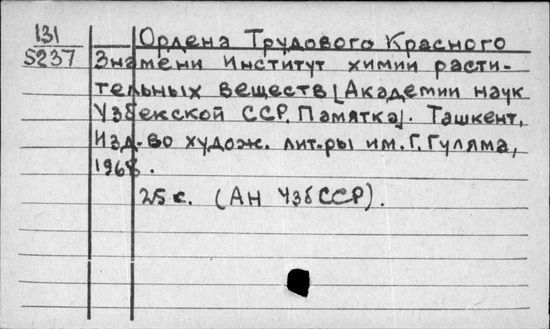 131
5237
Ордена Трудового Красного
Знамени Институт химии расти-
тельных веществ [Академии наук
Узбекской ССР. Памятка]. Ташкент,
Изд-во худож. лит-ры им. Г. Гуляма,
1968.
25 с. (АН УзбССР).